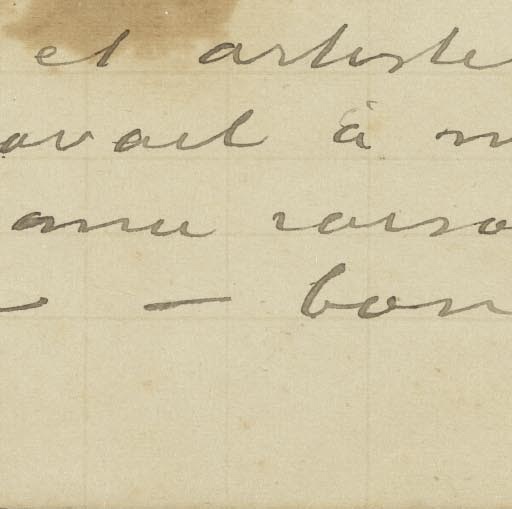 et artiste
avail à m
amu raiso
— bon